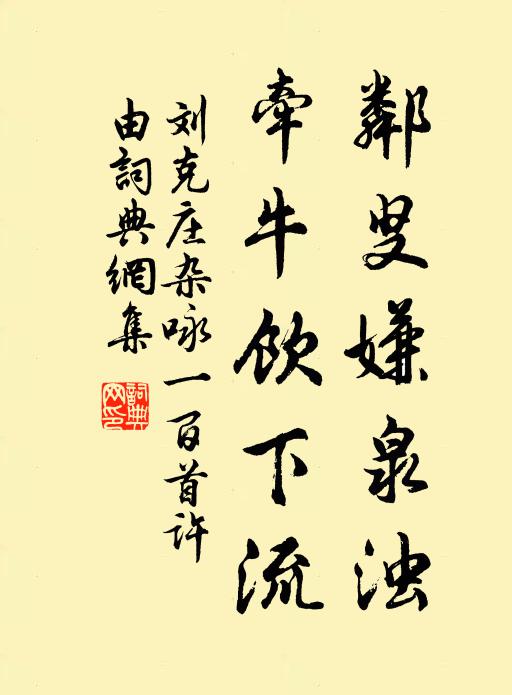 鄰叟嫌泉浊
牵牛饮下流
刘克庄杂咏一百首许
由詞典網集
詞典
网印